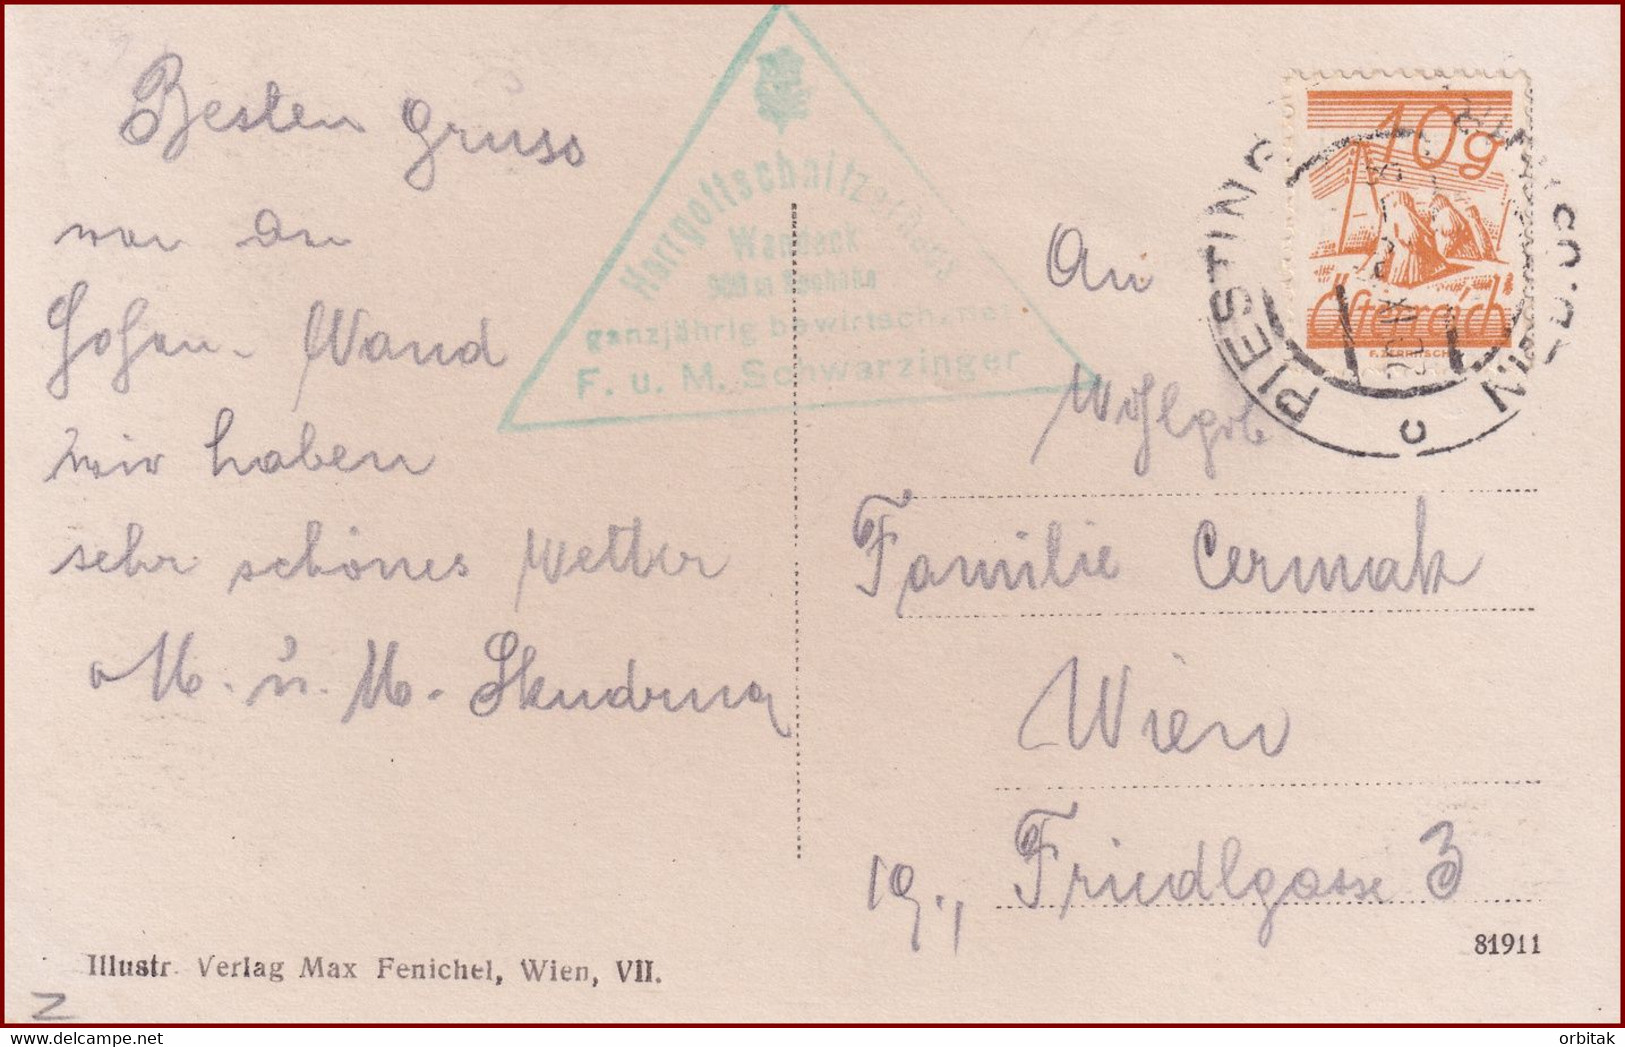 Besten Gruss
von der
Hohen-Wand
wir haben
sehr schönes Wetter
M. u. M.
Herrgottschnitzerhaus
Wandeck
ganzjährig bewirtschaftet
F. u. M. Schwarzinger
10g
Österreich
PIESTING
An
Wohlgeb
Familie Cermak
Wien
19., Friedlgasse 3
Illustr. Verlag Max Fenichel, Wien, VII.
81911
delcampe.net
orbitak